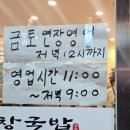 금토 연장영업
저녁 12시까지
영업시간 11:00
~저녁 9:00
창국밥